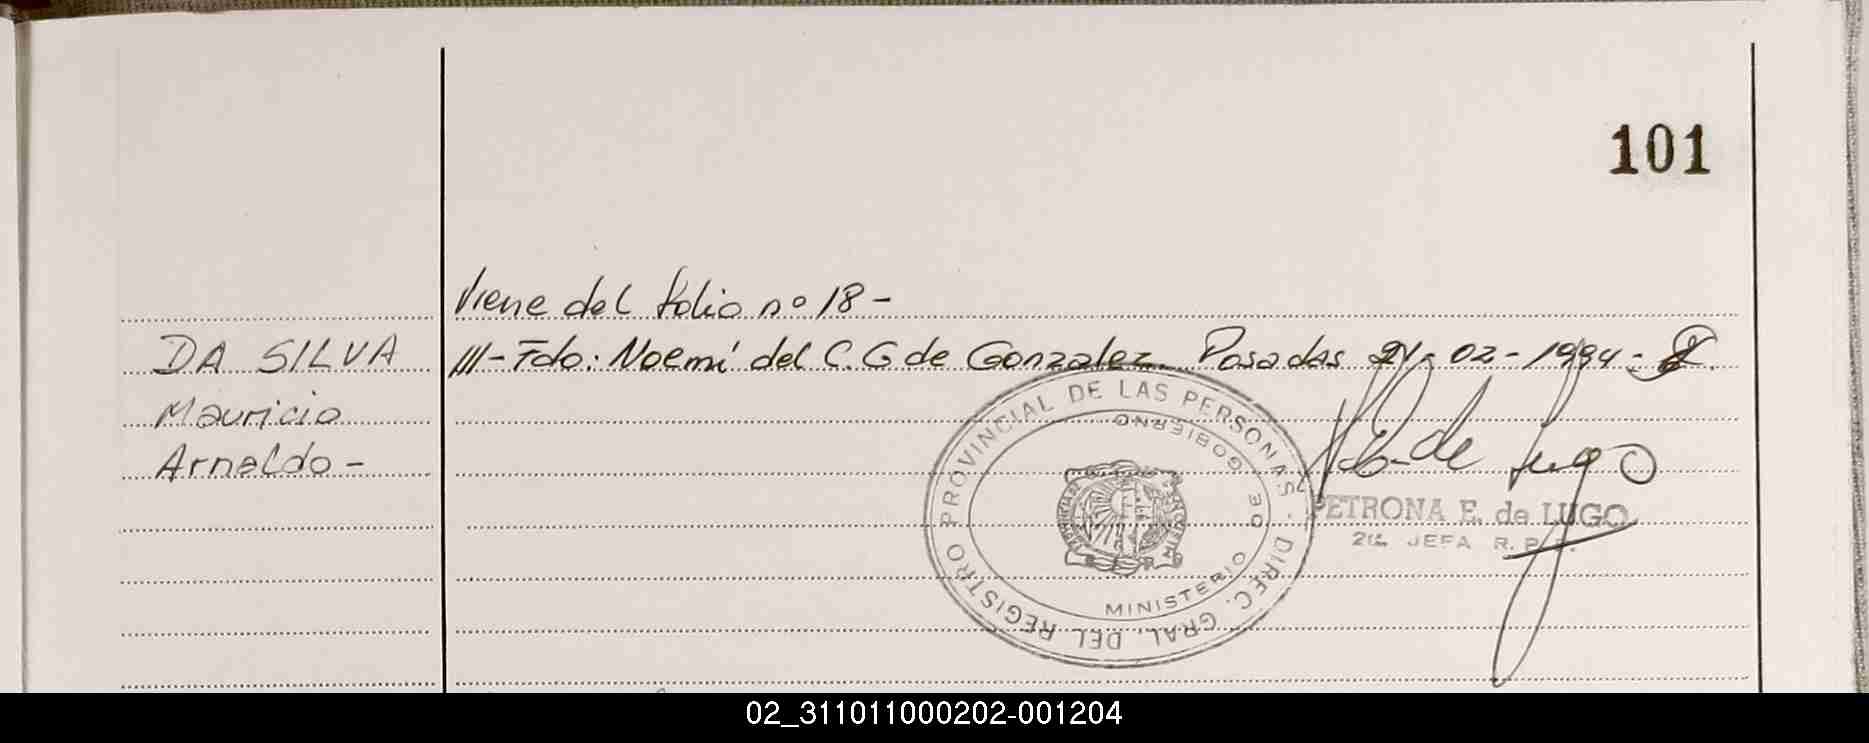 101
Viene del folio nº 18 -
DA SILVA
Mauricio
Arnaldo -
III - Fdo: Noemí del C. G de Gonzalez. Posadas 21 - 02 - 1994 -
DIREC. GRAL. DEL REGISTRO PROVINCIAL DE LAS PERSONAS
MINISTERIO DE GOBIERNO
PETRONA E. de LUGO
2da JEFA R. P.
02_311011000202-001204